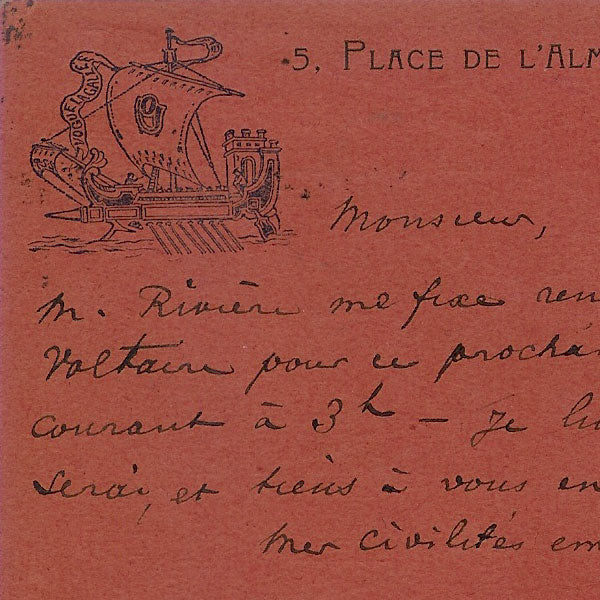 5, PLACE DE L'ALM
VOGUE LA GALÈRE
Monsieur,
M. Rivière me fixe ren
Voltaire pour ce procha
courant à 3h – Je lu
serai, et tiens à vous en
mes civilités em